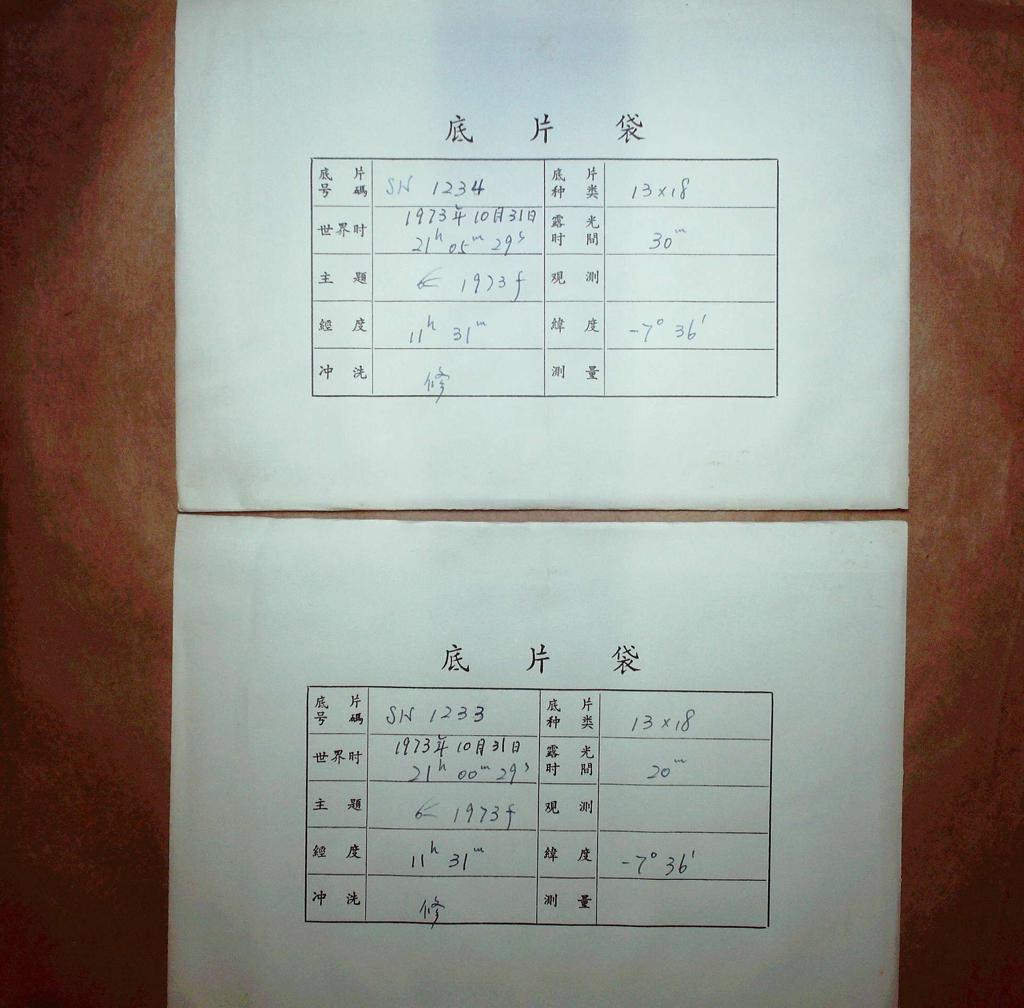 底 片 袋
底 片 号 碼 SN 1234 底 片 种 类 13×18
世界时 1973年10月31日 21h 05m 29s 露 光 时 間 30m
主 題 1973f 观 測
經 度 11h 31m 緯 度 -7° 36'
冲 洗 修 測 量
底 片 袋
底 片 号 碼 SN 1233 底 片 种 类 13×18
世界时 1973年10月31日 21h 00m 29s 露 光 时 間 20m
主 題 1973f 观 測
經 度 11h 31m 緯 度 -7° 36'
冲 洗 修 測 量